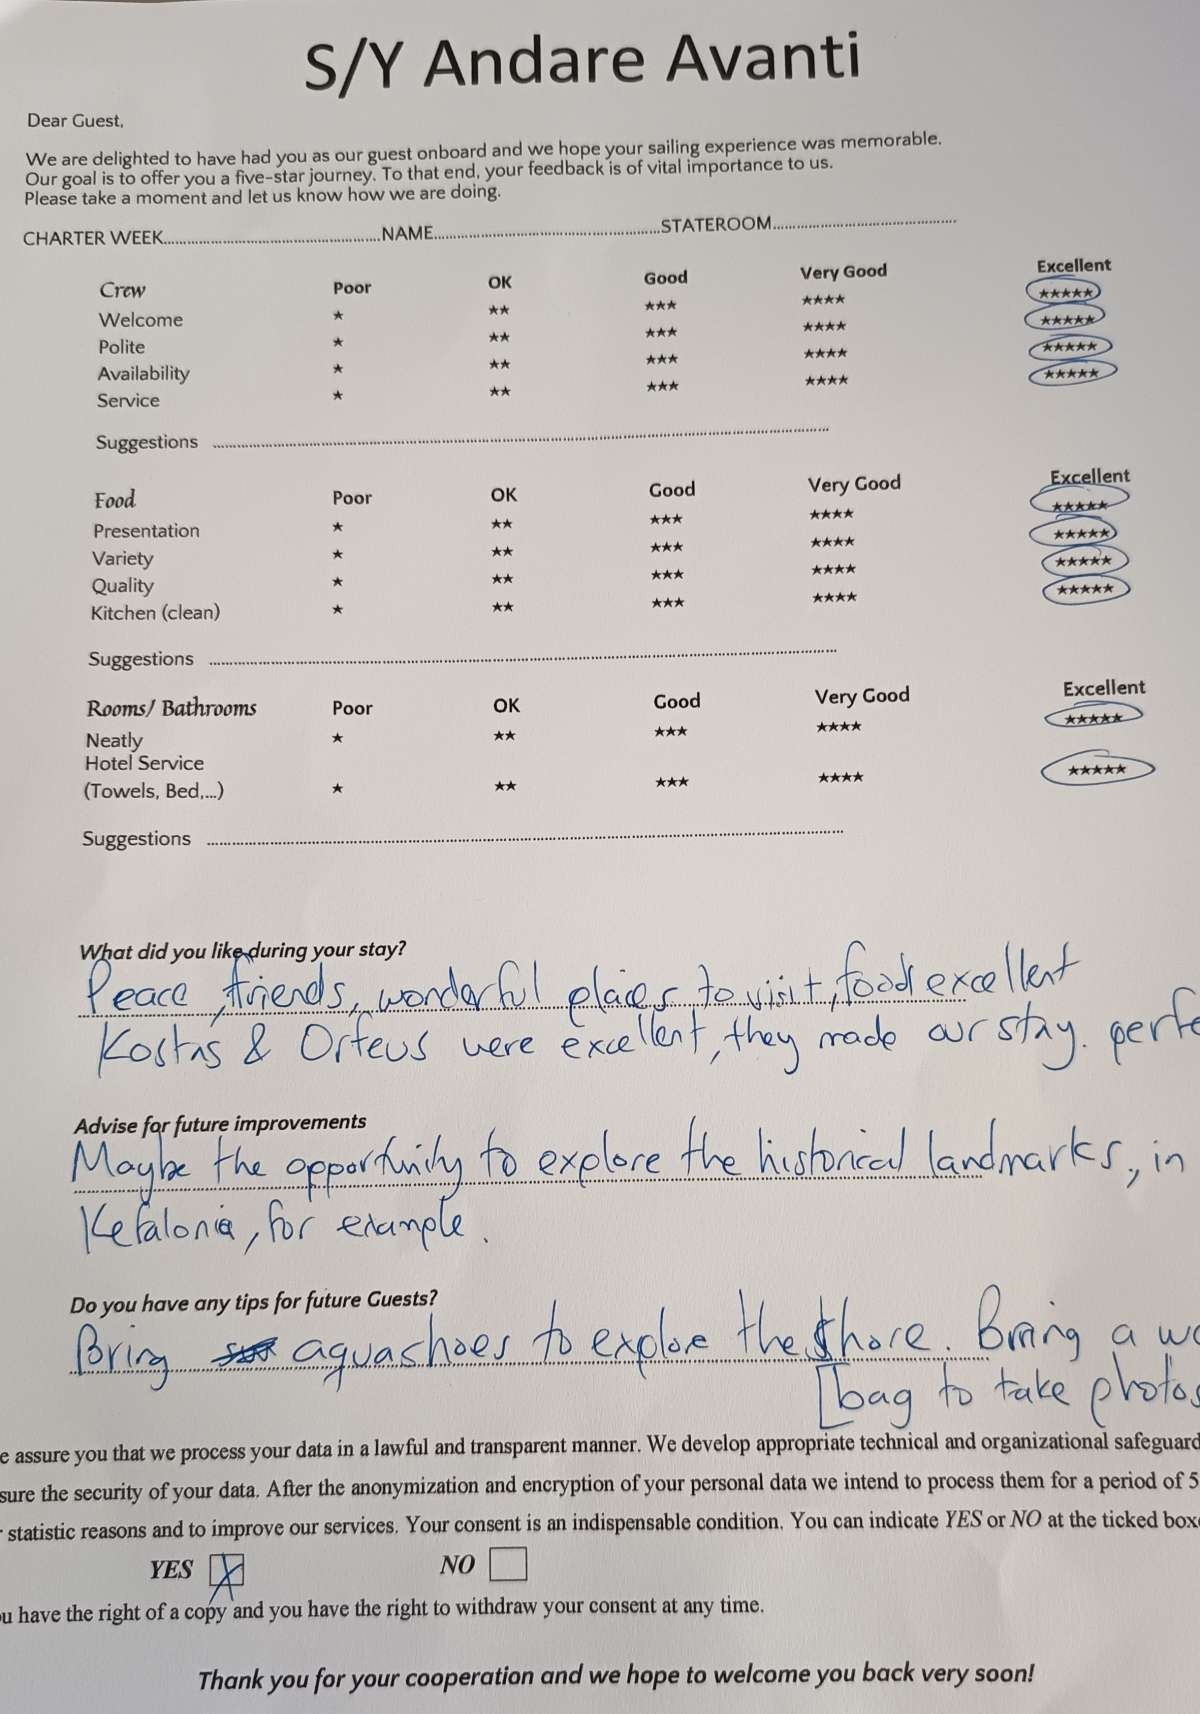 S/Y Andare Avanti
Dear Guest,
We are delighted to have had you as our guest onboard and we hope your sailing experience was memorable.
Our goal is to offer you a five-star journey. To that end, your feedback is of vital importance to us.
Please take a moment and let us know how we are doing.
CHARTER WEEK.......................................................NAME.........................................................STATEROOM..............................................
Crew Poor OK Good Very Good Excellent
Welcome ★ ★★ ★★★ ★★★★ ★★★★★
Polite ★ ★★ ★★★ ★★★★ ★★★★★
Availability ★ ★★ ★★★ ★★★★ ★★★★★
Service ★ ★★ ★★★ ★★★★ ★★★★★
Suggestions ..........................................................................................
Food Poor OK Good Very Good Excellent
Presentation ★ ★★ ★★★ ★★★★ ★★★★★
Variety ★ ★★ ★★★ ★★★★ ★★★★★
Quality ★ ★★ ★★★ ★★★★ ★★★★★
Kitchen (clean) ★ ★★ ★★★ ★★★★ ★★★★★
Suggestions ..........................................................................................
Rooms/ Bathrooms Poor OK Good Very Good Excellent
Neatly ★ ★★ ★★★ ★★★★ ★★★★★
Hotel Service
(Towels, Bed,...) ★ ★★ ★★★ ★★★★ ★★★★★
Suggestions ..........................................................................................
What did you like during your stay?
Peace, friends, wonderful places to visit, food excellent
Kostas & Orfeus were excellent, they made our stay. perfe
Advise for future improvements
Maybe the opportunity to explore the historical landmarks, in
Kefalonia, for example.
Do you have any tips for future Guests?
Bring aquashoes to explore the shore. Bring a wa
[bag to take photos
e assure you that we process your data in a lawful and transparent manner. We develop appropriate technical and organizational safeguard
sure the security of your data. After the anonymization and encryption of your personal data we intend to process them for a period of 5
r statistic reasons and to improve our services. Your consent is an indispensable condition. You can indicate YES or NO at the ticked box
YES X NO
ou have the right of a copy and you have the right to withdraw your consent at any time.
Thank you for your cooperation and we hope to welcome you back very soon!